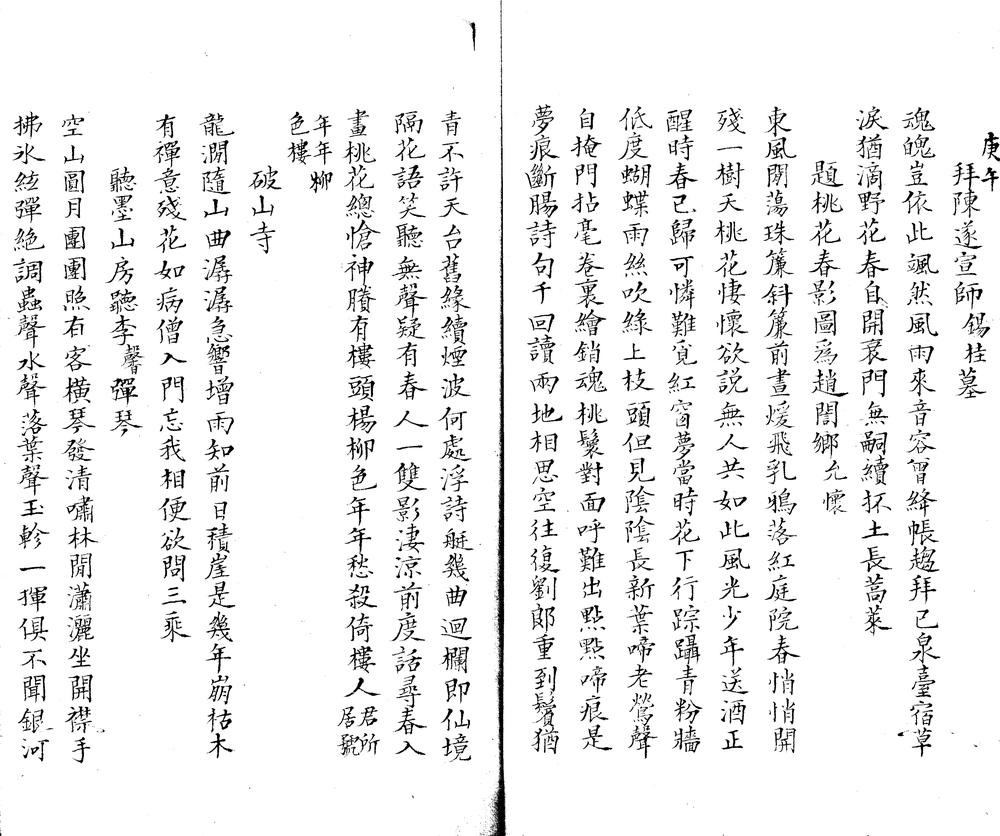 庚午
拜陳遂宣師錫桂墓
魂魄豈依此颯然風雨來音容曾絳帳趨拜已泉臺宿草
淚猶滴野花春自開衰門無嗣續抔土長蒿萊
題桃花春影圖爲趙誾鄉允懷
東風閒蕩珠簾斜簾前晝煖飛乳鴉落紅庭院春悄悄開
殘一樹夭桃花悽懷欲説無人共如此風光少年送酒正
醒時春已歸可憐難覓紅窗夢當時花下行踪躡青粉牆
低度蝴蝶雨絲吹綠上枝頭但見陰陰長新葉啼老鶯聲
自掩門拈毫卷裏繪銷魂桃鬟對面呼難出點點啼痕是
夢痕斷腸詩句千回讀兩地相思空往復劉郎重到鬢猶
青不許天台舊緣續煙波何處浮詩艇幾曲迴欄即仙境
隔花語笑聽無聲疑有春人一雙影淒涼前度話尋春入
畫桃花總愴神賸有樓頭楊柳色年年愁殺倚樓人君所居號
年年柳色樓
破山寺
龍澗隨山曲潺潺急響增雨知前日積崖是幾年崩枯木
有禪意殘花如病僧入門忘我相便欲問三乘
聽墨山房聽李馨彈琴
空山圓月團團照有客橫琴發清嘯林閒瀟灑坐開襟手
拂冰絃彈絶調蟲聲水聲落葉聲玉軫一揮俱不聞銀河